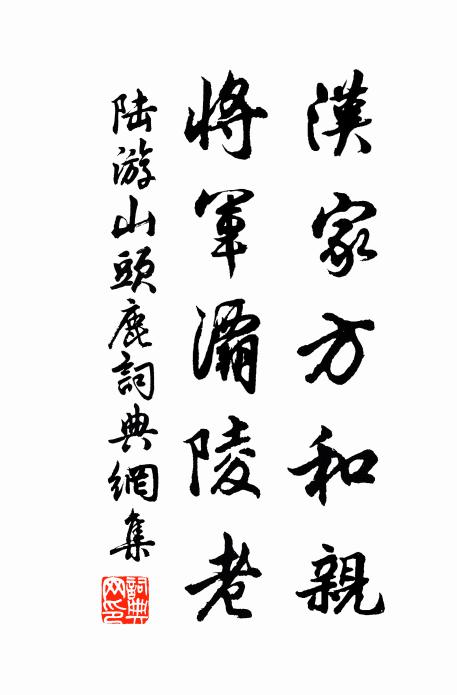 漢家方和親
將軍灞陵老
陆游山頭鹿詞典網集
詞典網印